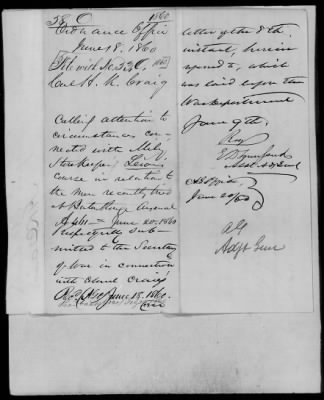 58. O 1860
Ordnance Office
June 18. 1860
File with No. 530.
Col. H. K. Craig
Calling attention to
circumstances con-
nected with Mily
Storekeeper
course in relation to
the men recently tried
at Watertown Arsenal
A. G. O. June 20. 1860
Respectfully sub-
mitted to the Secretary
of War in connection
with Colonel Craig's
Rec'd June 18. 1860.
letter of the 8th
instant, herein
to, which
was laid before the
War Department
June 9th.
Asst. Adj. Genl
A. G. Office,
June 20/60
Adjt Genl